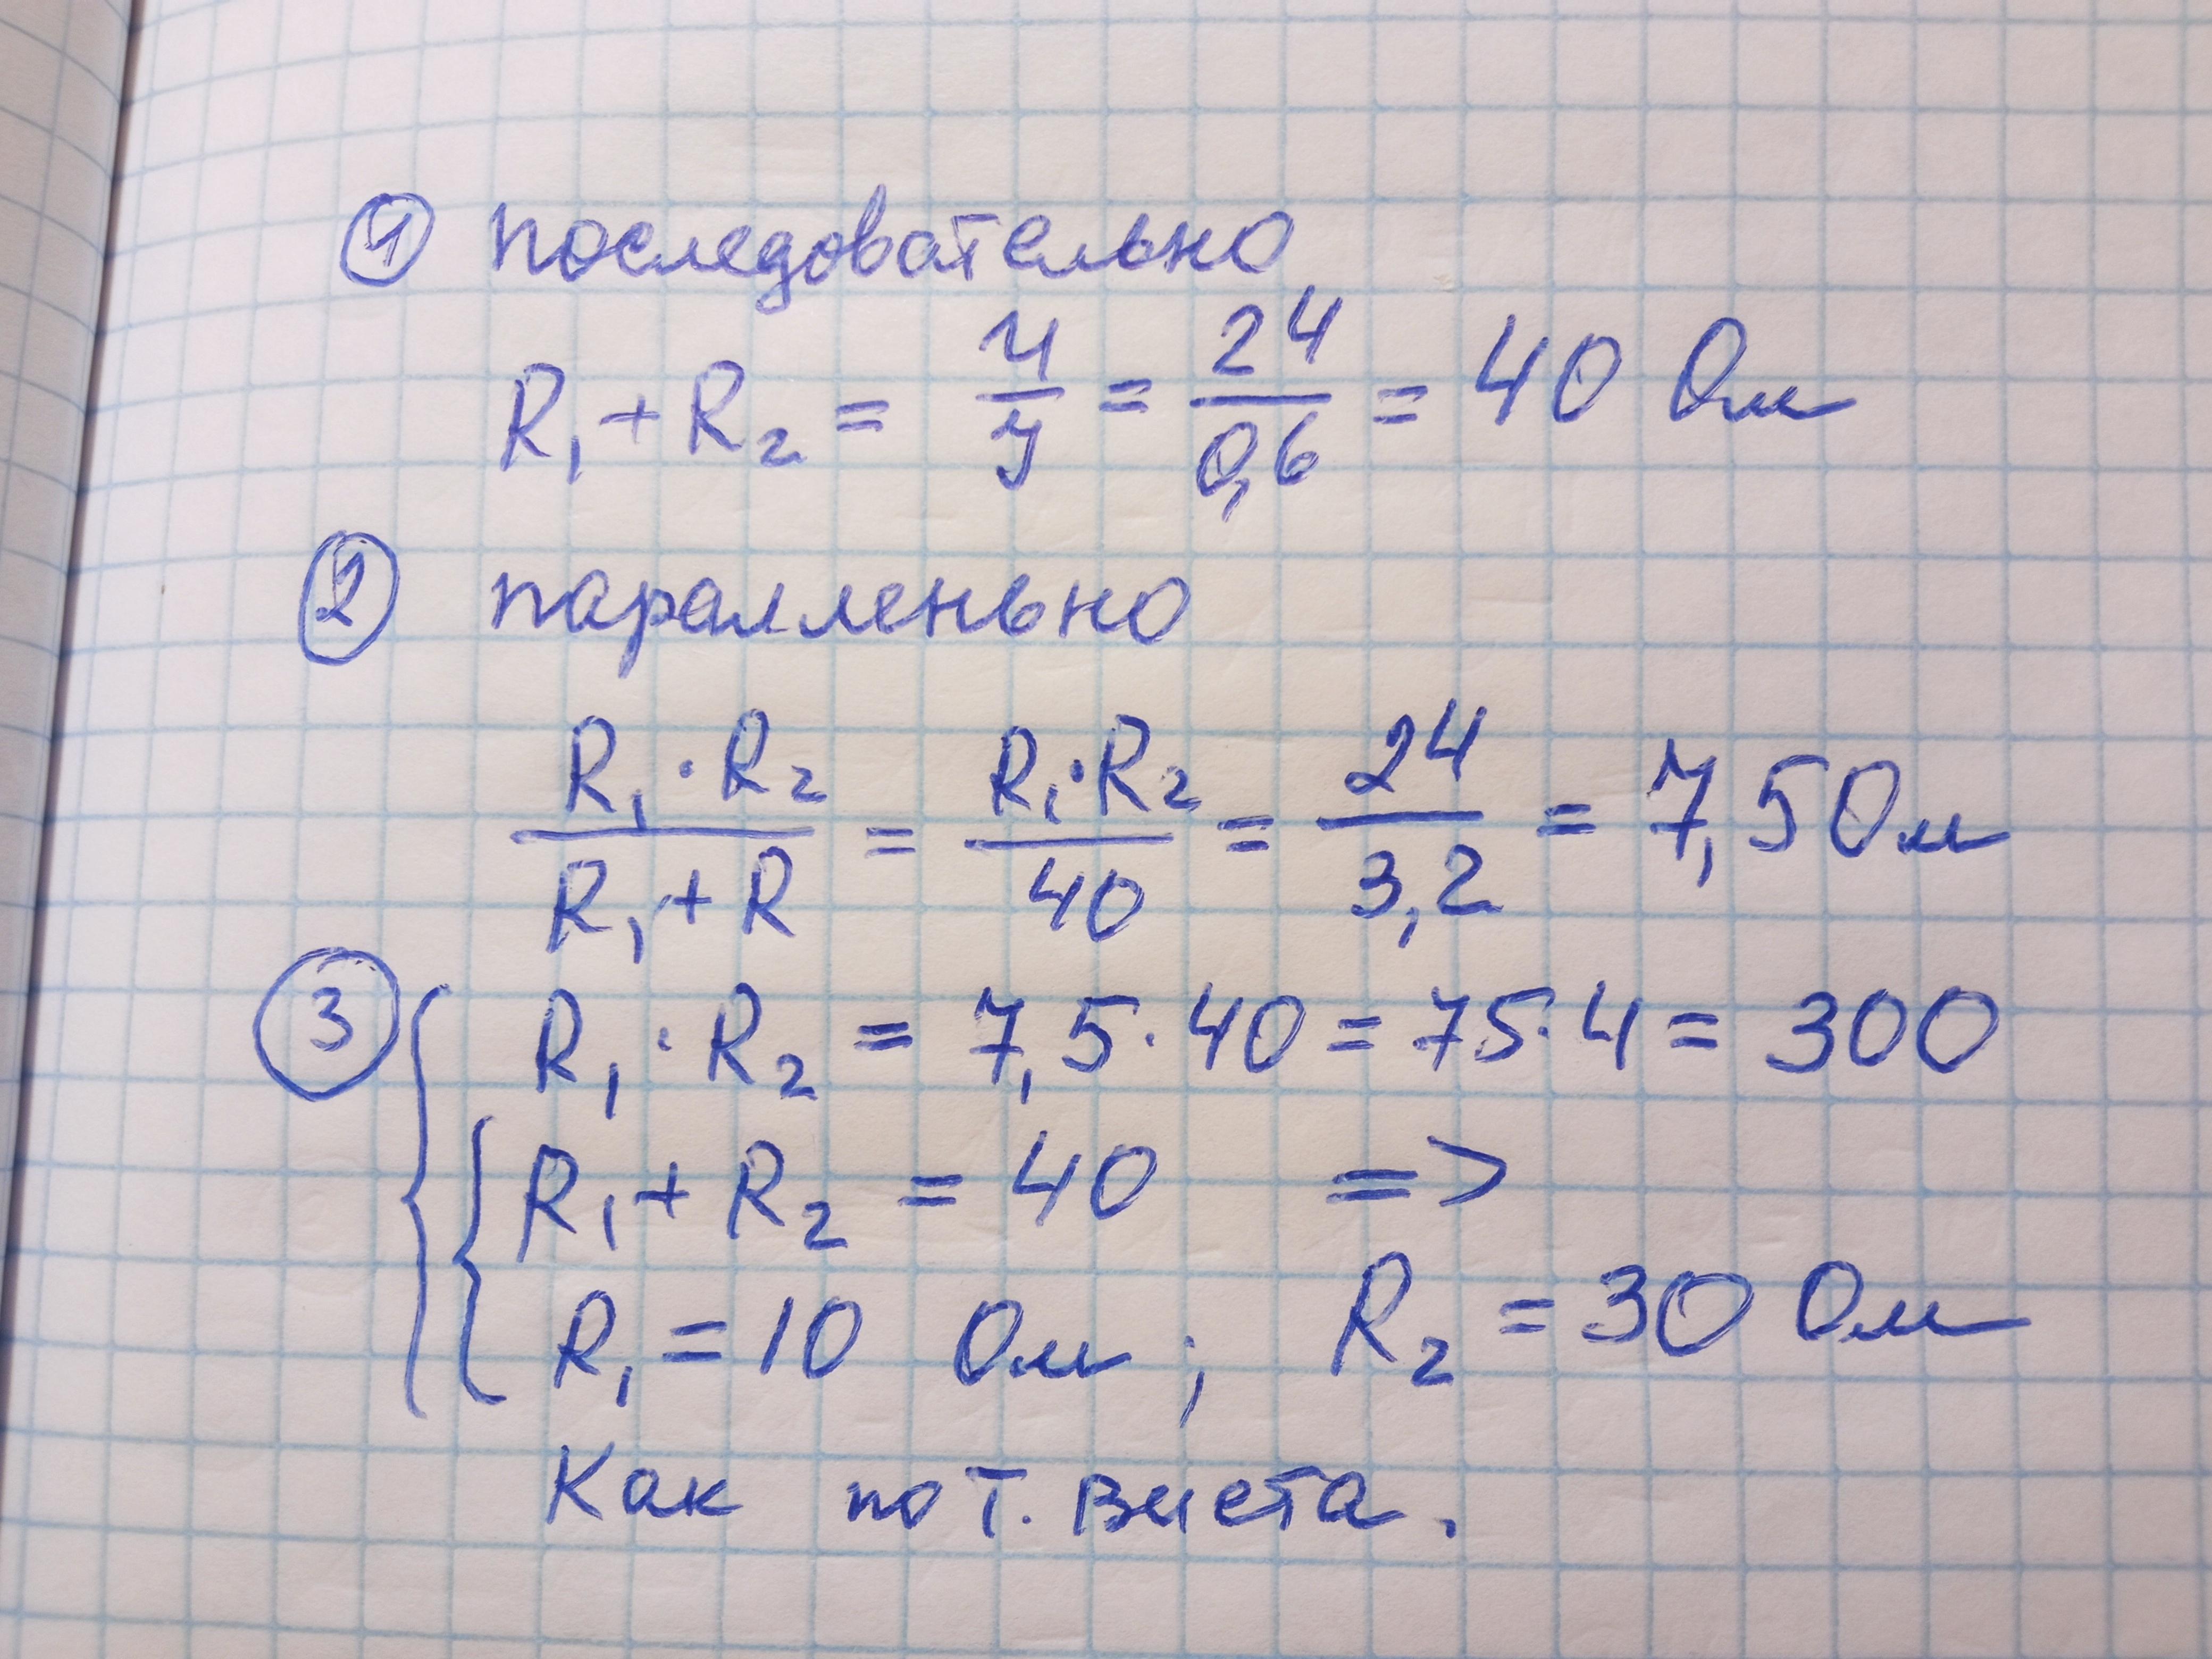 ① последовательно
R₁ + R₂ = U/I = 24/0,6 = 40 Ом
② паралленьно
R₁ · R₂ / R₁ + R = R₁ · R₂ / 40 = 24/3,2 = 7,5 Ом
③ { R₁ · R₂ = 7,5 · 40 = 75 · 4 = 300
{ R₁ + R₂ = 40 =>
R₁ = 10 Ом ; R₂ = 30 Ом
Как по т. Виета.